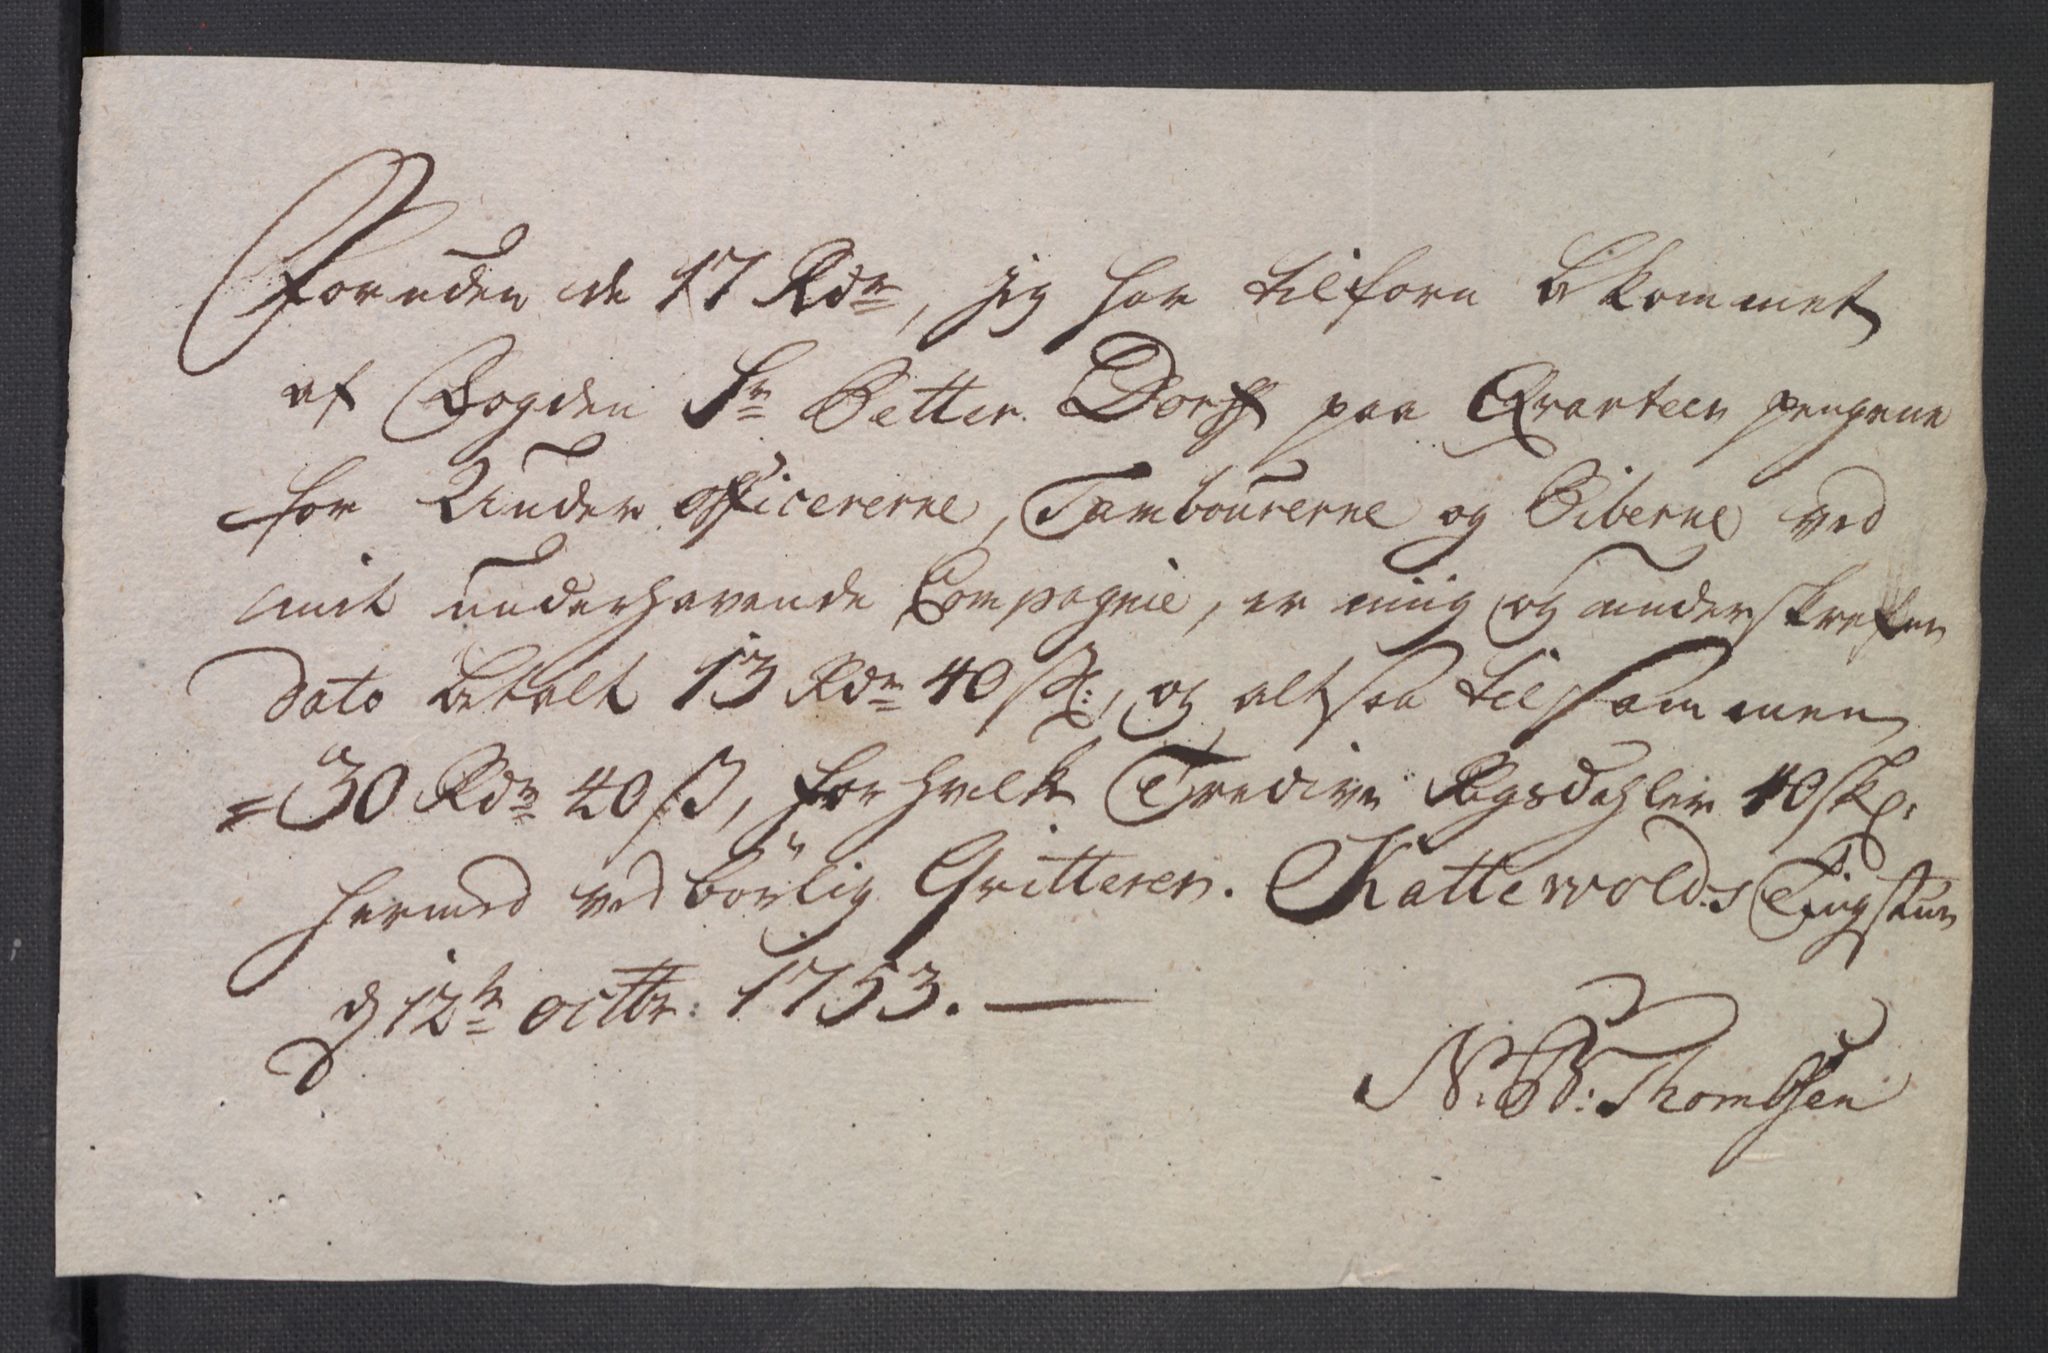 Foruden de 17 Rdr, jeg har tilforn bekommet
af Fogden Sr Petter Dorff paa Qvarteer pengene
for Under officererne, Tambourerne og Piberne ved
mit underhavende Compagnie, er mig og underskrefven
dato betalt 13 Rdr 40 sk:, og altsaa tilsammen
= 30 Rdr 40 ß, for hvilke Tredive Rigsdahler 40 sk:
hermed ved börlig Qvitterer. Kattewolds Tingstue
d 12te octbr: 1753. —
N. W: Thombsen